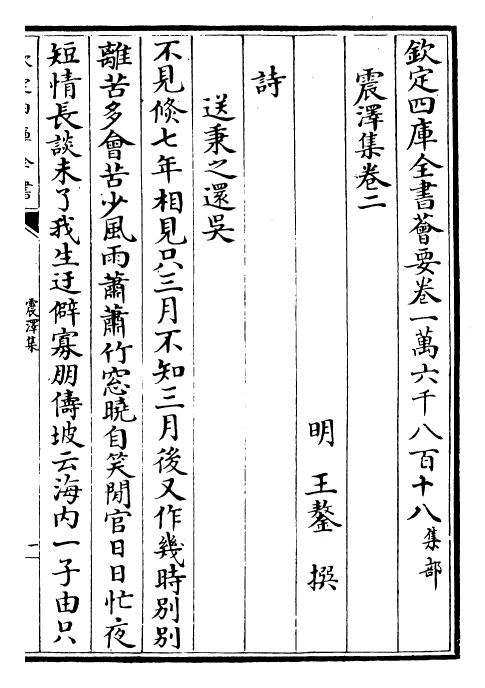 欽定四庫全書薈要卷一萬六千八百十八集部
震澤集卷二
明 王鏊 撰
詩
送秉之還吳
不見倐七年相見只三月不知三月後又作幾時別別
離苦多會苦少風雨蕭蕭竹窓曉自笑閒官日日忙夜
短情長談未了我生迂僻寡朋儔坡云海内一子由只
欽定四庫全書
震澤集
一